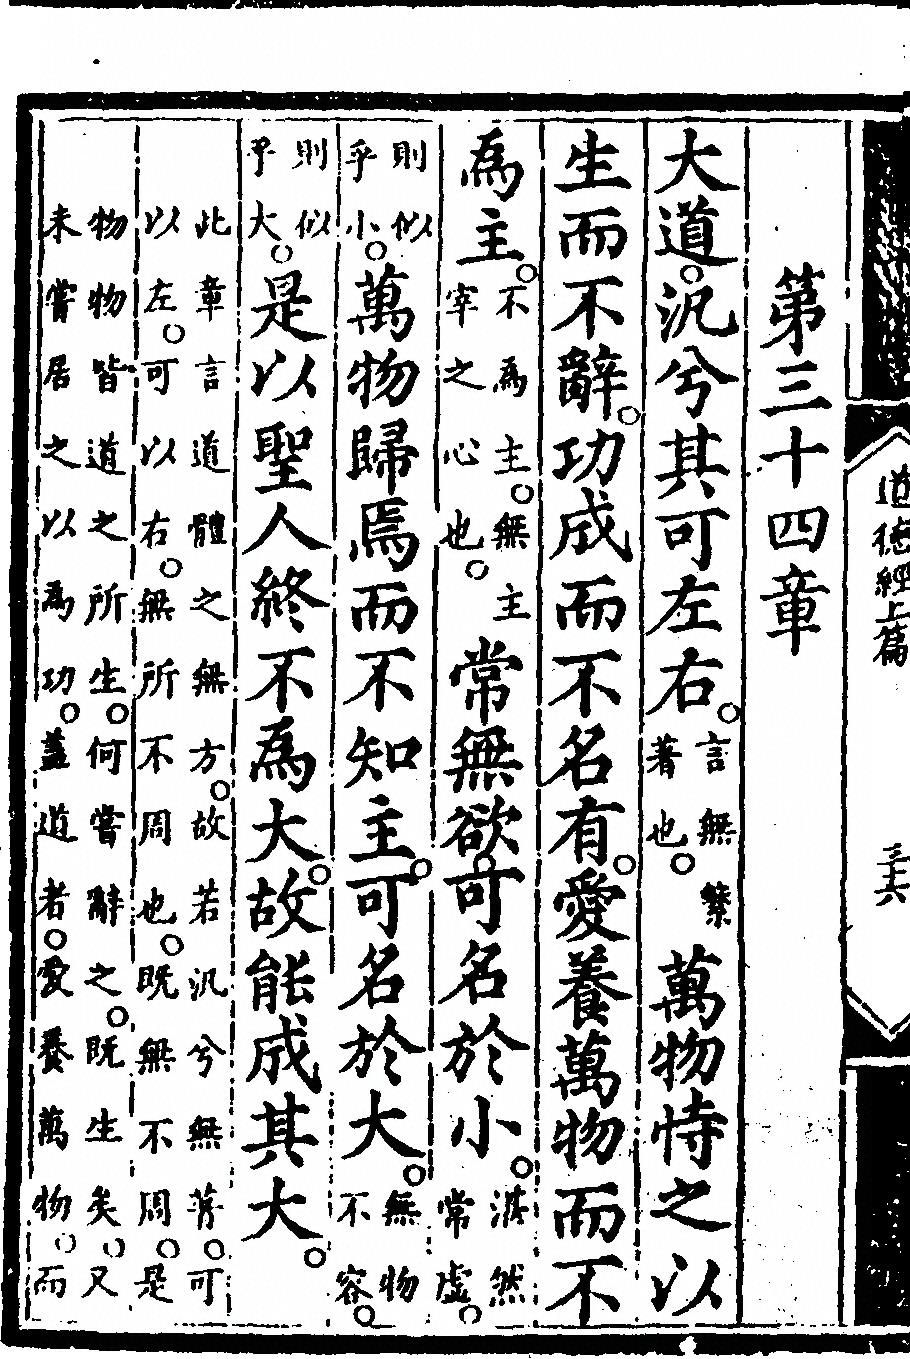 道德經上篇 三十六
第三十四章
大道。汎兮其可左右。言無繫著也。萬物恃之以
生而不辭。功成而不名有。愛養萬物而不
為主。不為主。無主宰之心也。常無欲。可名於小。湛然常虛。
則似乎小。萬物歸焉而不知主。可名於大。無物不容。
則似乎大。是以聖人終不為大。故能成其大。
此章言道體之無方。故若汎兮無著。可
以左。可以右。無所不周也。既無不周。是
物物皆道之所生。何嘗辭之。既生矣。又
未嘗居之以為功。蓋道者。愛養萬物。而